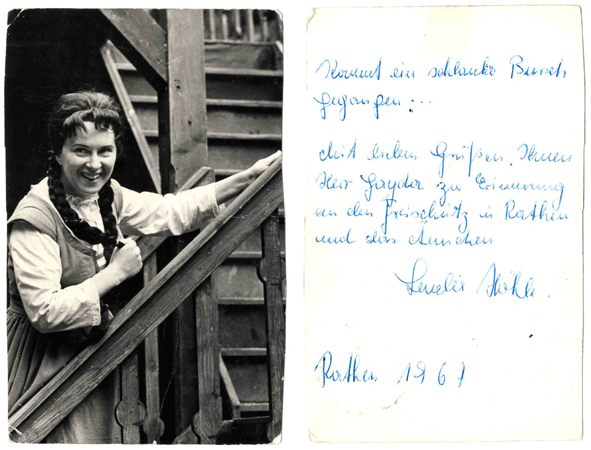 Kommt ein schlanker Bursch
gegangen ...
Mit lieben Grüßen, Ihnen
Herr Gayda zur Erinnerung
an den Freischütz in Rathen
und das Ännchen
Rathen 1967